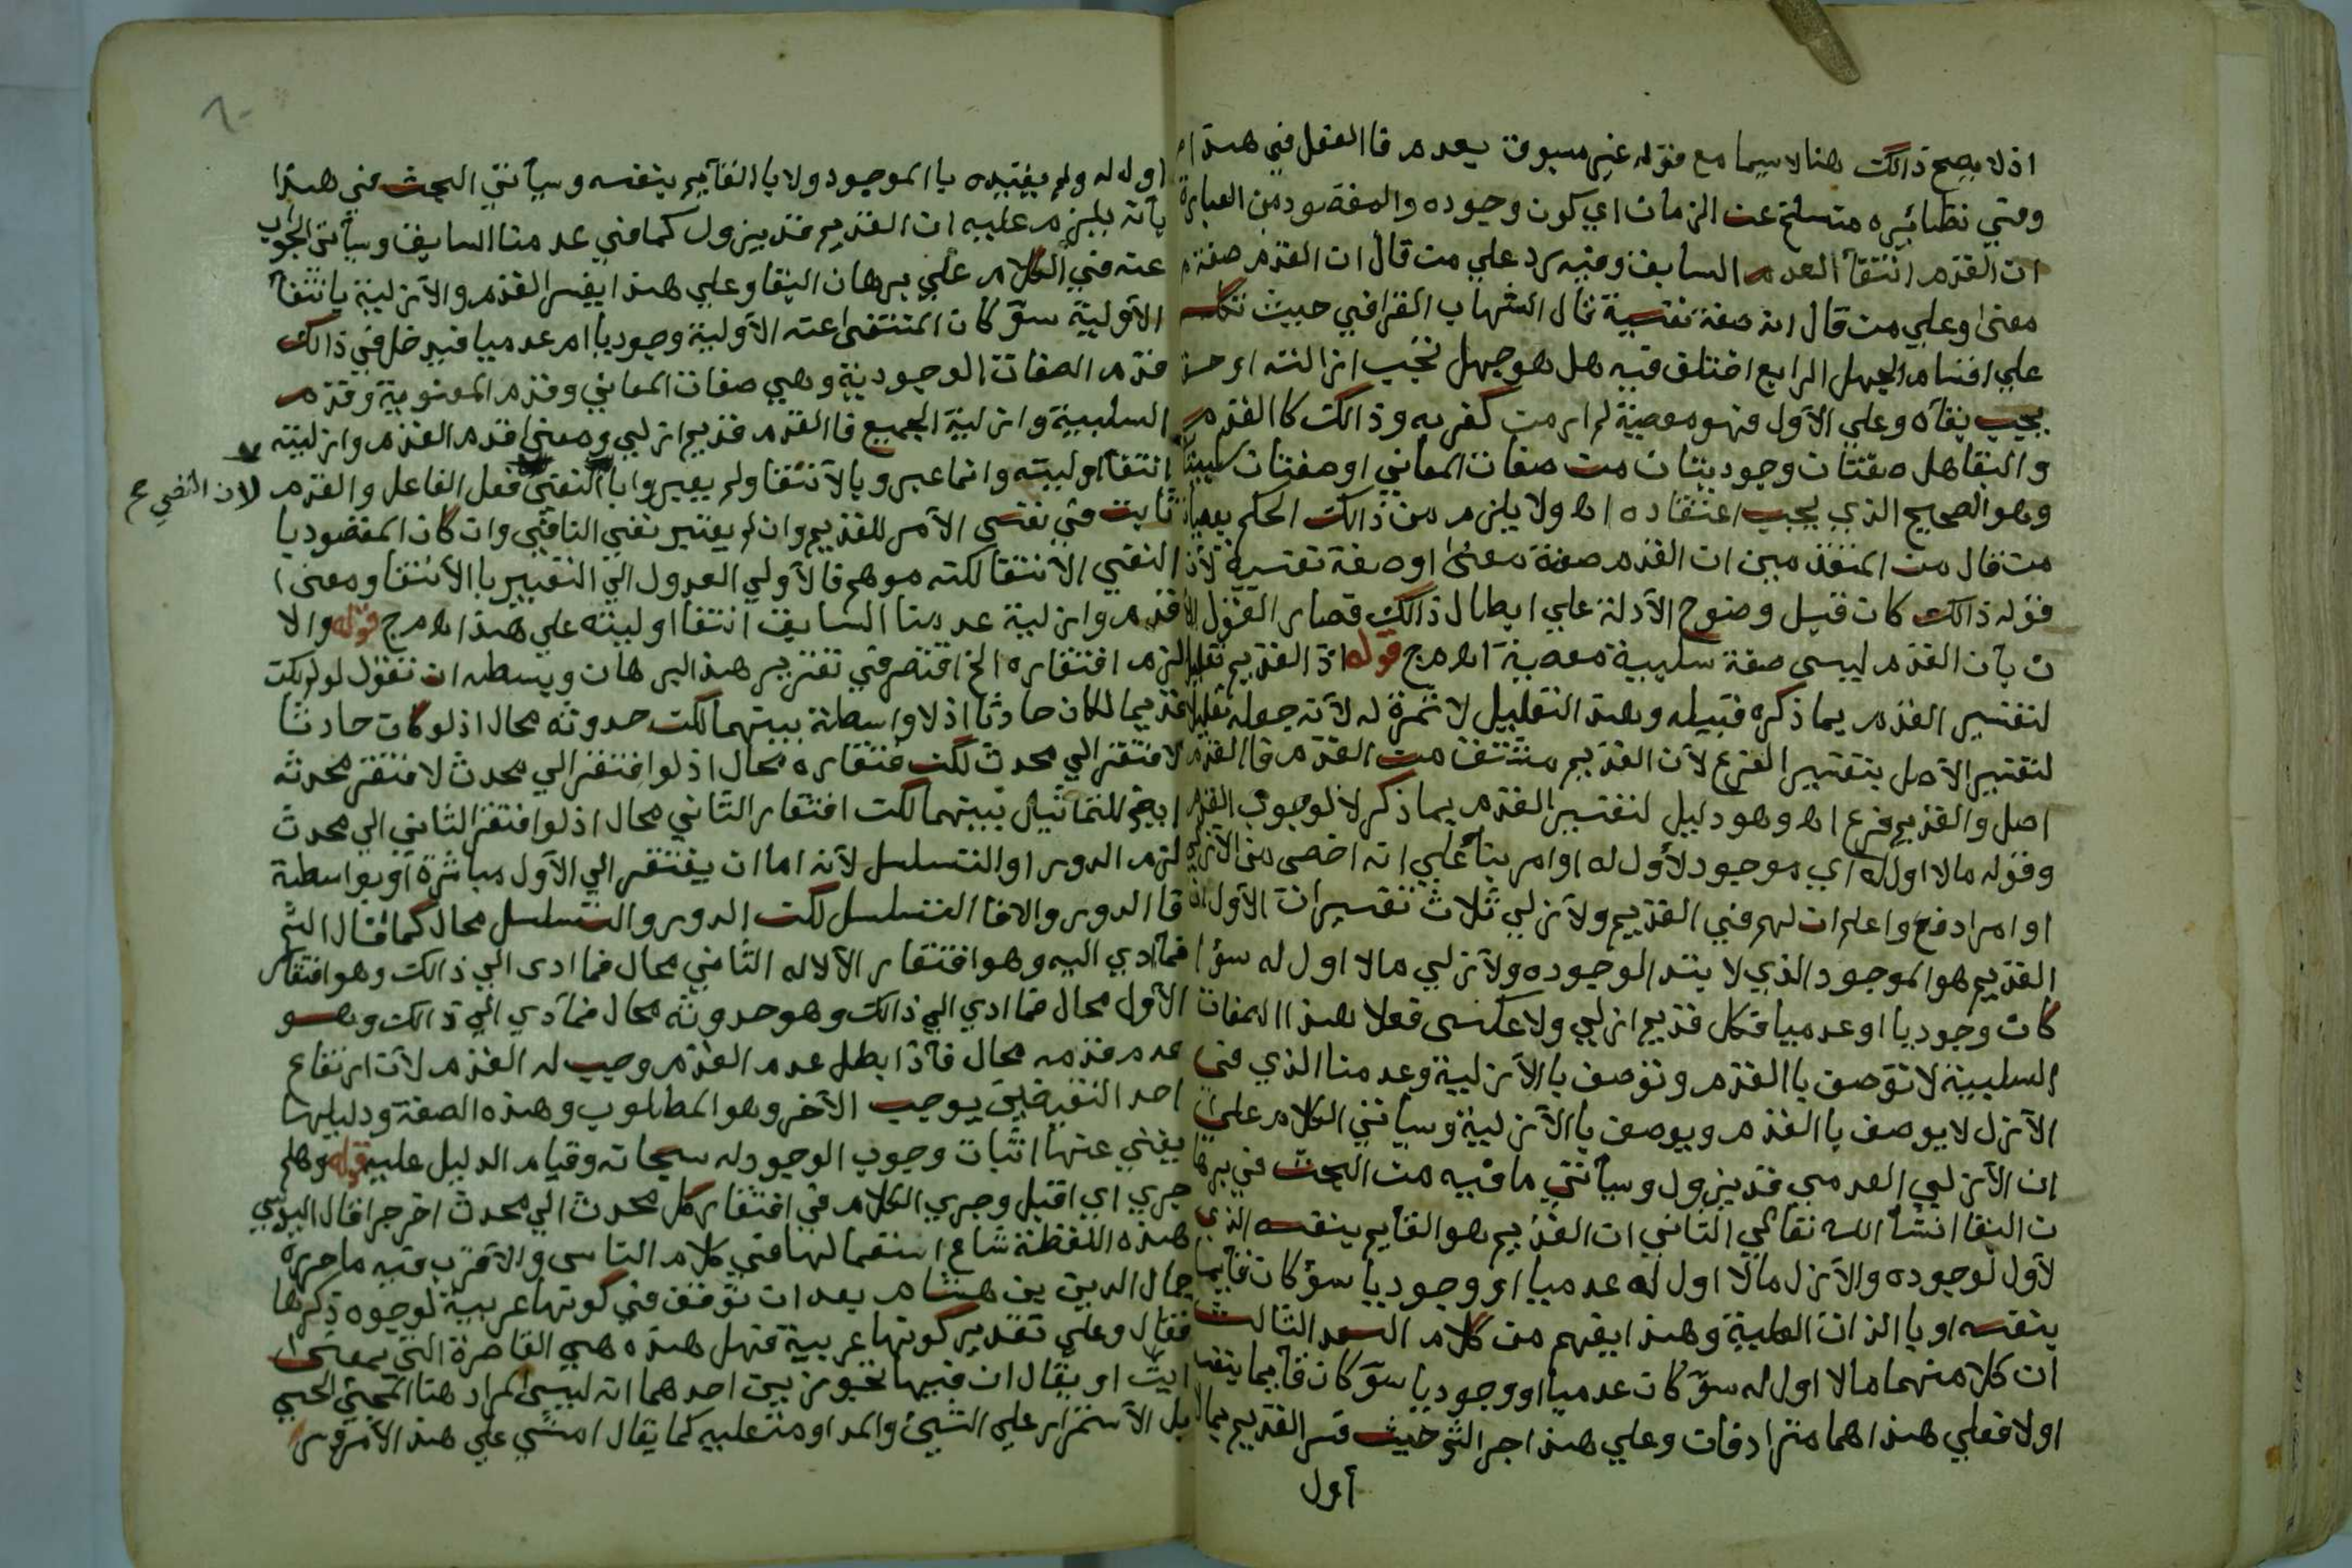 اذ لا يصح ذالك هنا لا سيما مع قوله غير مسبوق بعدم فا الفعل في هذا
وفي نظائره منسلخ عن الزمان اي كون وجوده والمقصود من العبارة
ان القدم انتفآ العدم السابق وفيه رد علي من قال ان القدم صفة
معنى وعلي من قال انه صفة نفسية قال الشهاب القرافي حيث تكلم
علي اقسام الجهل الرابع اختلف فيه هل هو جهل تجب ازالته او حق
يجب بقآه وعلي الأول فهو معصية لم ار من كفر به وذالك كا القدم
والبقا هل صفتان وجوديتان من صفات المعاني او صفتان سلبيتا
وهو الصحيح الذي يجب اعتقاده اه ولا يلزم من ذالك الحكم بعصيان
من قال من المتقدمين ان القدم صفة معنى او صفة نفسية لان
قوله ذالك كان قبل وضوح الأدلة علي ابطال ذالك فصار القول الا
ن بأن القدم ليس صفة سلبية معصية اه مج قوله اذ القديم تعليل
لتفسير القدم بما ذكره قبيله وهذ التعليل لا ثمرة له لأنه جعله تعليلا
لتفسير الأصل بتفسير الفرع لأن القديم مشتق من القدم فا القدم
اصل والقديم فرع اه وهو دليل لتفسير القدم بما ذكر لا لوجوب القدم
وقوله ما لا اول له اي موجود لأول له او امر بنآ علي انه اخص من الأزلي
او مرادفع واعلم ان لهم في القديم والأزلي ثلاث تفسيرات الأول ان
القديم هو الموجود الذي لا ابتد الوجوده والأزلي ما لا اول له سوآ
كان وجوديا او عدميا فكل قديم ازلي ولا عكس فعلا هذا الصفات
السلبية لا توصف با القدم وتوصف با الأزلية وعدمنا الذي في
الأزل لا يوصف با القدم ويوصف با الأزلية وسيأتي الكلام علي
ان الأزلي العدمي قد يزول وسيأتي ما فيه من البحث في برها
ن البقا انشآ الله تعالي الثاني ان القديم هو القايم بنفسه الذي
لأول لوجوده والأزل ما لا اول له عدميا او وجوديا سوآ كان قايما
بنفسه او با الذات العلية وهذا يفهم من كلام السعد الثالث
ان كلا منهما ما لا اول له سوآ كان عدميا او وجوديا سوآ كان قايما بنفسه
اولا فعلي هذا هما مترادفان وعلي هذا جرا الشم حيث فسر القديم بما لا
أول
٦٠
اول له ولم يقيده با الموجود ولا با القآيم بنفسه وسيأتي البحث في هذا
بأنه يلزم عليه ان القديم قد يزول كما في عدمنا السابق وسيأتي الجواب
عنه في الكلام علي برهان البقا وعلي هذا يفسر القدم والأزلية بانتفآ
الأولية سوآ كان المنتفى عنه الأولية وجوديا ام عدميا فيدخل في ذالك
قدم الصفات الوجودية وهي صفات المعاني وقدم المعنوية وقدم
السلبية وازلية الجميع فا القدم قديم ازلي ومعنى قدم القدم وازليته
انتفآ اوليته وانما عبر وبالآنتفا ولم يعبروا با النفي فعل الفاعل والقدم
لان النفي صح
ثابت في نفس الأمر للقديم وان لم يعتبر نفي النافي وان كان المقصود با
النفي الآنتفا لكنه موهم فا لأولي العدول الي التعبير با الأنتفا ومعنى
قدم وازلية عدمنا السابق انتفا اوليته علي هذا اه مج قوله والا
لزم افتقاره الخ اقتصر في تقرير هذ البرهان وبسطه ان تقول لو لم يكن
قديما لكان حادثا اذ لا واسطة بينهما لكن حدوثه محال اذ لو كان حادثا
لافتقر الي محدث لكن فتقاره محال اذ لو افتقر الي محدث لافتقر محدثه
ايضا للتماثيل بينهما لكن افتقار الثاني محال اذ لو افتقر الثاني الي محدث
لزم الدور او التسلسل لأنه اما ان يفتقر الي الأول مباشرة او بواسطة
فا الدور والا فا التسلسل لكن الدور والتسلسل محال كما قال الشم
فمآ ادي اليه وهو افتقار الآلاله الثاني محال فما ادى الي ذالك وهو افتقار
الأول محال فما ادي الي ذالك وهو حدوثه محال فمآ ادي الي ذالك وهو
عدم قدمه محال فآذا بطل عدم القدم وجب له القدم لأن ارتفاع
احد النقيضين يوجب الآخر وهو المطلوب وهذه الصفة ودليلها
يغني عنها اثبات وجوب الوجود له سبحانه وقيام الدليل عليه قوله وهلم
جري اي اقبل وجري الكلام في افتقار كل محدث الي محدث اخر جرا قال اليوسي
هذه اللفظة شاع استعمالها في كلام الناس والاقرب فيه ما حرره
جمال الدين بن هشام بعد ان توقف في كونها عربية لوجوه ذكرها
فقال وعلي تقدير كونها عربية فهل هذه هي القاصرة التي بمعنى
ايت او يقال ان فيها تجوزين احدهما انه ليس المراد هنا المجئ الحسي
بل الأستمرار علي الشيئ والمداومة عليه كما يقال امشي علي هذ الأمر